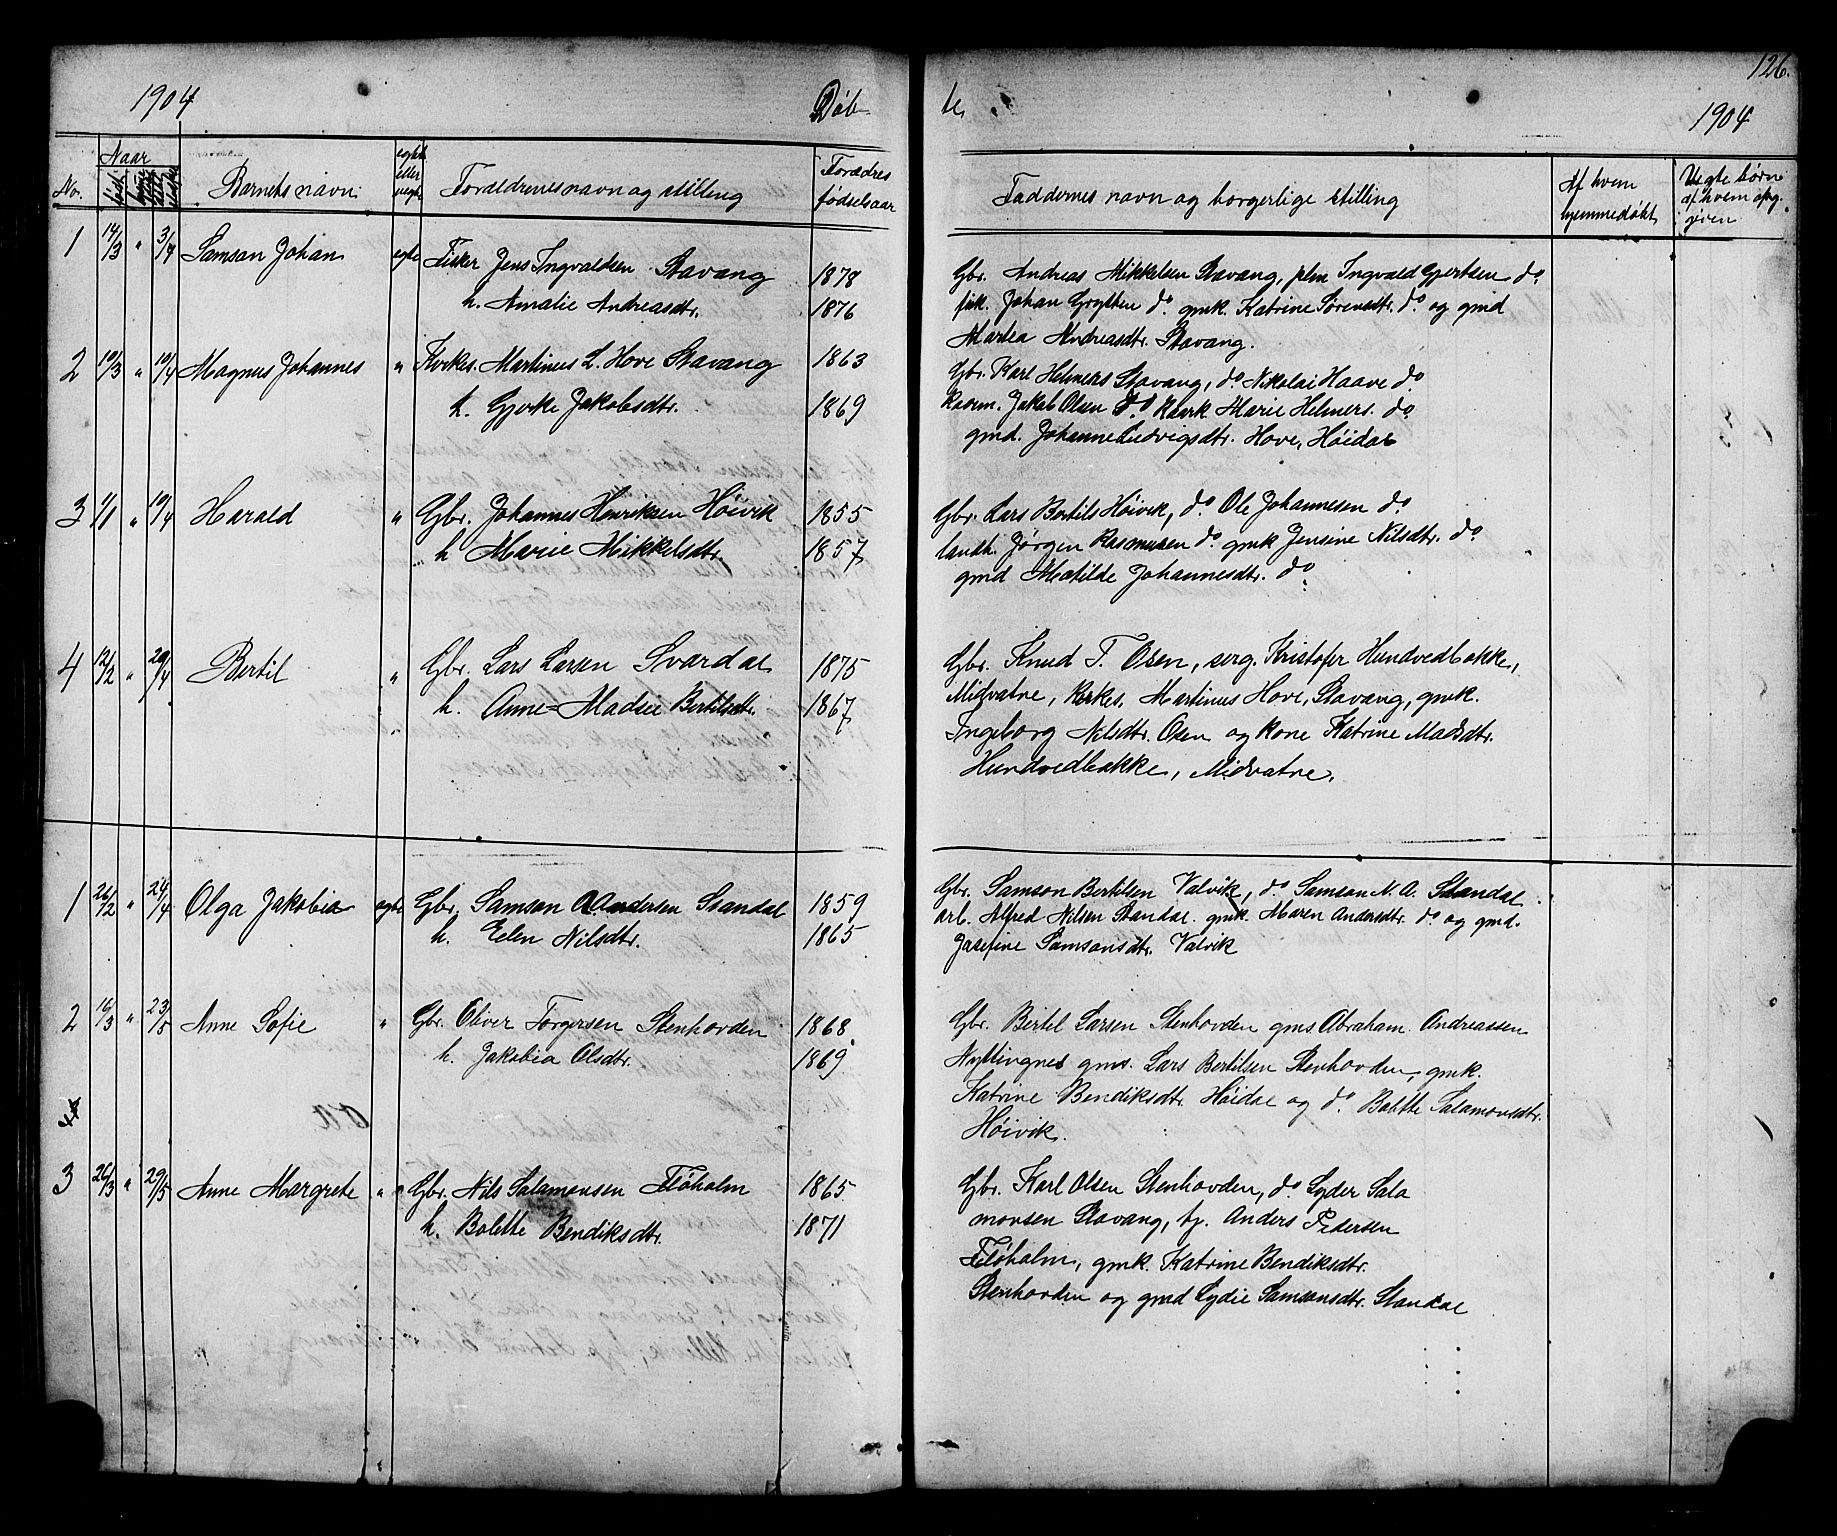 126.
1904
Døb
te
1904
No.
Naar
født
Barnets navn
egte eller uegte
Forældrenes navn og stilling
Forældres fødselsaar
Faddernes navn og borgerlige stilling
Af hvem hjemmedøbt
Uegte børn af hvem opgiven
1 14/3 " 3/4 Samson Johan egte Fisker Jens Ingvaldsen Stavang 1878
h. Amalie Andreasdtr. 1876
Gbr. Andreas Mikkelsen Stavang, plm Ingvald Gjertsen do.
fisk. Johan Grytten do. gmk. Katrine Sørensdtr. do. og gmd
Martea Andreasdtr. Stavang.
2 10/3 " 10/4 Magnus Johannes " Kirkes. Martinus L. Hove Stavang 1863
h. Gjerke Jakobsdtr. 1869
Gbr. Karl Helmers Stavang, do. Nikolai Haave do.
Jakob Olsen do. Marie Helmers. do.
gmd. Johanne Ludvigsdtr. Hove, Høidal
3 1/1 " 10/4 Harald " Gbr. Johannes Henriksen Høivik 1855
h Marie Mikkelsdtr. 1857
Gbr. Lars Bertils Høivik, do. Ole Johannesen do.
landh. Jørgen Rasmusen do. gmk Jensine Nilsdtr. do.
gmd Matilde Johannesdtr. do.
4 12/2 " 29/4 Bertil " Gbr. Lars Larsen Svardal 1875
h. Anne-Madsie Bertilsdtr. 1867
Gbr. Knud T. Osen, serg. Kristofer Hundvedbakke,
Midvatne, Kirkes. Martinus Hove, Stavang, gmk.
Ingeborg Nilsdtr. Osen og kone Katrine Madsdtr.
Hundvedbakke, Midvatne.
1 26/2 " 24/4 Olga Jakobia egte Gbr. Samson A Andersen Standal 1859
h. Elen Nilsdtr. 1865
Gbr. Samson Bertilsen Valvik, do. Samson N. A. Standal
arb. Alfred Nilsen Standal. gmk. Maren Andersdtr. do. og gmd.
Josefine Samsonsdtr. Valvik
2 16/3 " 23/5 Anne Sofie " Gbr. Oliver Torgersen Stenhovden 1868.
h. Jakobia Olsdtr. 1869
Gbr. Bertel Larsen Stenhovden gms. Abraham Andreassen
Nyttingnes gms. Lars Bertilsen Stenhovden, gmk.
Katrine Bendiksdtr. Høidal og do. Bolette Salamonsdtr.
Høivik.
3 26/3 " 29/5 Anne Margrete " Gbr. Nils Salamonsen Fløholm 1865
h. Bolette Bendiksdtr. 1871
Gbr. Karl Olsen Stenhovden, do. Lyder Sala
monsen Stavang, fg. Anders Pedersen
Fløholm, gmk. Katrine Bendiksdtr.
Stenhovden og gmd Lydie Samsonsdtr. Standal